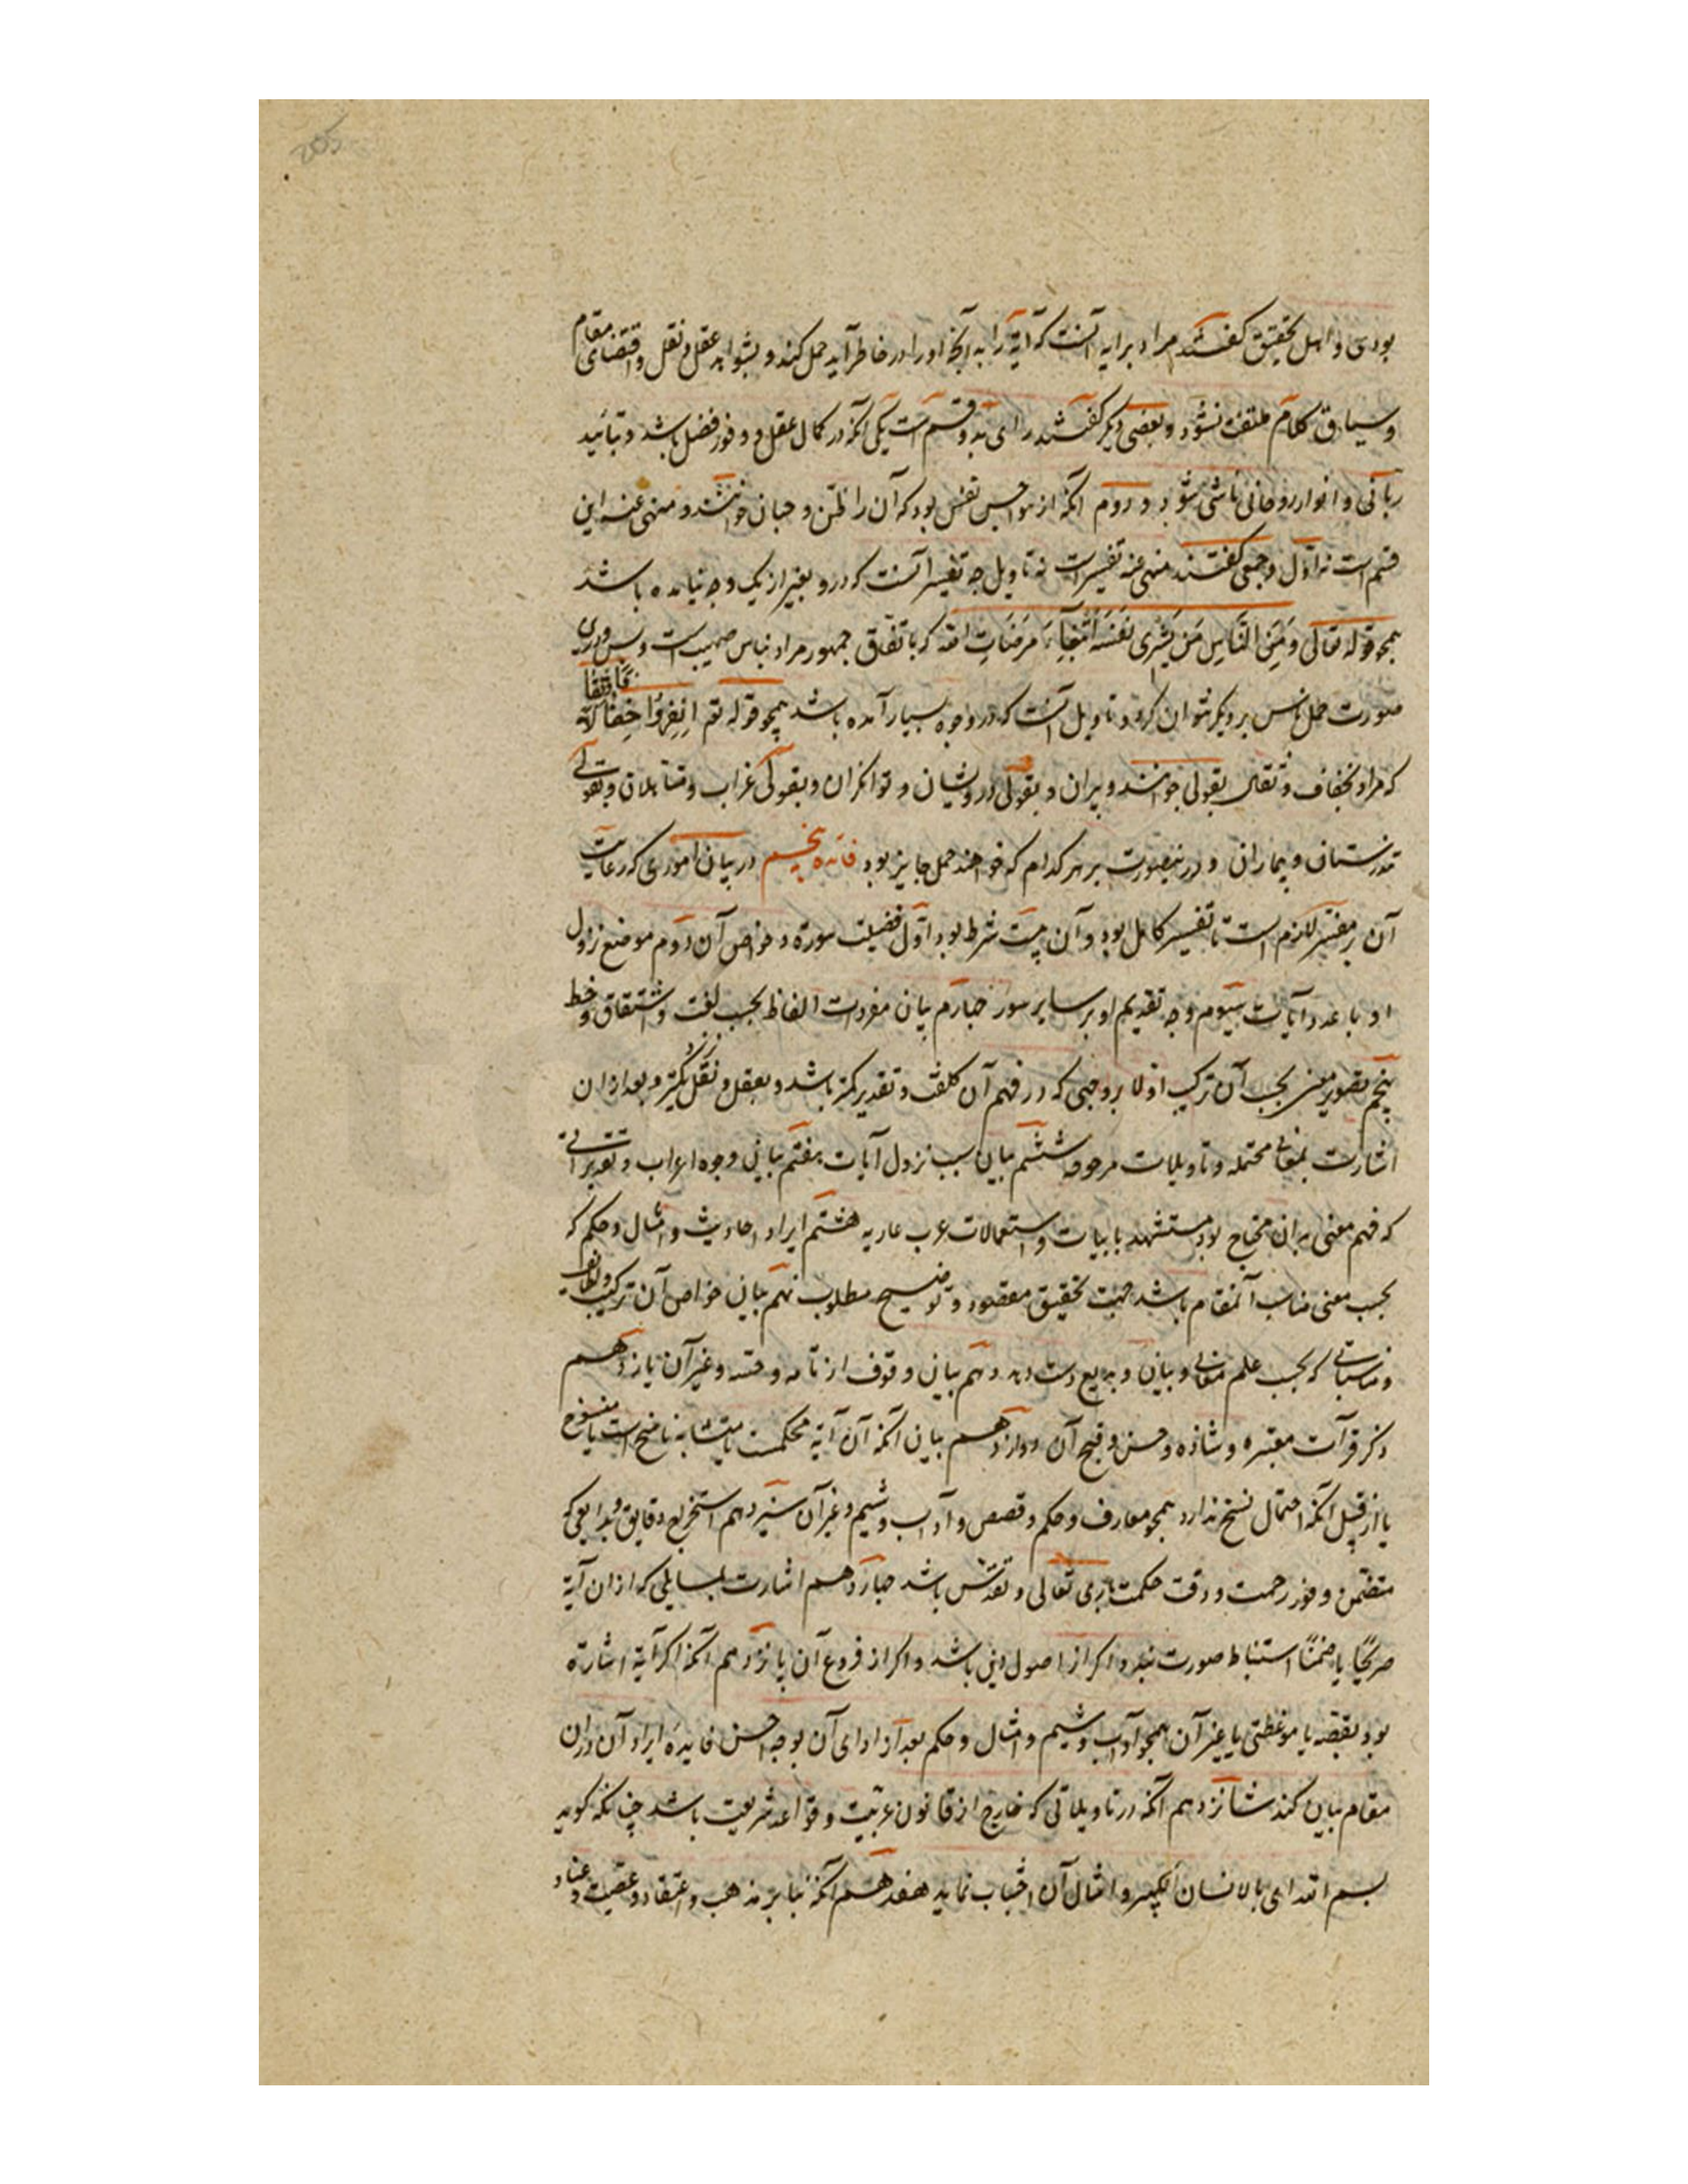 بودی و اهل تحقیق گفتند مراد برایه آنست که آیة را به آنچه او را در خاطر آید حمل کند و بشواهد عقل و نقل و اقتضای مقام
و سیاق کلام ملتفت نشود و بعضی دیگر گفتند رای بدو قسم است یکی آنکه در کمال عقل و وفور فضل باشد و بتائید
ربانی و انوار روحانی ناشی شود و دوم آنکه از هواجس نفس بود که آن را ظن و حبان خوانند و منهی عنه این
قسم است نه اول و جمعی گفتند منهی عنه تفسیر است نه تاویل چه تفسیر آنست که درو بغیر از یک وجه نیامده باشد
همچو قوله تعالی وَمِنَ النَّاسِ مَن یَشری نَفسَهُ ابتِغاءَ مَرضَاتِ الله که باتفاق جمهور مراد بناس صهیب است و بس و درین
صورت حمل ناس بر دیگر نتوان کرد و تاویل آنست که درو وجوه بسیار آمده باشد همچو قوله تع انفِرُوا خِفَافًا وَثِقَالًا الآیة
که مراد بخفاف و ثقال بقولی جوانند و پیران و بقولی درویشان و توانگران و بقولی عزاب و متأهلان و بقولی
تندرستان و بیماران و درینصورت بر هر کدام که خواهند حمل جایز بود فائده پنجم در بیان اموری که رعایت
آن بر مفسر لازم است تا تفسیر کامل بود و آن بیست شرط بود اول فضیلت سورة و خواص آن دوم موضع نزول
او با عدد آیات سیوم وجه تقدیم او بر سایر سور چهارم بیان مفردات الفاظ بحسب لغت و اشتقاق و خط
پنجم تصویر معنی بحسب آن ترکیب اولا بروجهی که در فهم آن کلفت و تقدیر کمتر باشد و بعقل و نقل نزدیکتر و بعد ازان
اشارت بمعانی محتمله و تاویلات مرجوحه ششم بیان سبب نزول آیات هفتم بیان وجوه اعراب و تقدیراتی
که فهم معنی بران محتاج بود مستشهد بابیات و استعمالات عرب عاربه هشتم ایراد احادیث و امثال و حکم که
بحسب معنی مناسب آنمقام باشد جهت تحقیق مقصود و توضیح مطلوب نهم بیان خواص آن ترکیب و لطائف
و مناسباتی که بحسب علم معانی و بیان و بدیع دست دهد دهم بیان وقوف از تامه و حسنه و غیر آن یازدهم
ذکر قرآت معتبره و شاذه و حسن و قبح آن دوازدهم بیان آنکه آن آیة محکمست یا متشابه ناسخ است یا منسوخ
یا از قبیل آنکه احتمال نسخ ندارد همچو معارف و حکم و قصص و آداب و شیم و غیر آن سیزدهم استخراج دقایق و بدایعی که
متضمن وفور رحمت و دقت حکمت باری تعالی و تقدس باشد چهاردهم اشارت بمسایلی که ازان آیة
صریحًا یا ضمنًا استنباط صورت بندد اگر از اصول این باشد و اگر از فروع آن پانزدهم آنکه اگر آیة اشارة
بود بقصه یا موعظتی یا غیر آن همچو آداب و شیم و امثال و حکم بعد از ادای آن بوجه احسن فایدهٔ ایراد آن دران
مقام بیان کند شانزدهم آنکه در تاویلاتی که خارج از قانون عربیت و قواعد شریعت باشد چنانکه گوید
بسم الله ای بالانسان الکبیر و امثال آن اجتناب نماید هفدهم آنکه بنا بر مذهب و اعتقاد و عصبیت و عناد